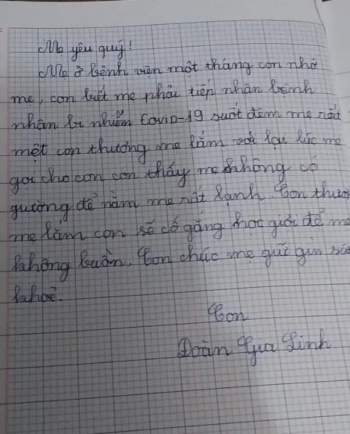 Mẹ yêu quý!
Mẹ ở bệnh viện một tháng con nhớ
mẹ, con biết mẹ phải tiếp nhân bệnh
nhân bị nhiễm Covid-19 suốt đêm mẹ rất
mệt con thương mẹ lắm với lại lúc mẹ
gọi cho con con thấy mẹ không có
giường để nằm mẹ rất lạnh. Con thươ
mẹ lắm con sẽ cố gắng học giỏi để mẹ
không buồn. Con chúc mẹ giữ gìn sức
khoẻ.
Con
Đoàn Gia Linh